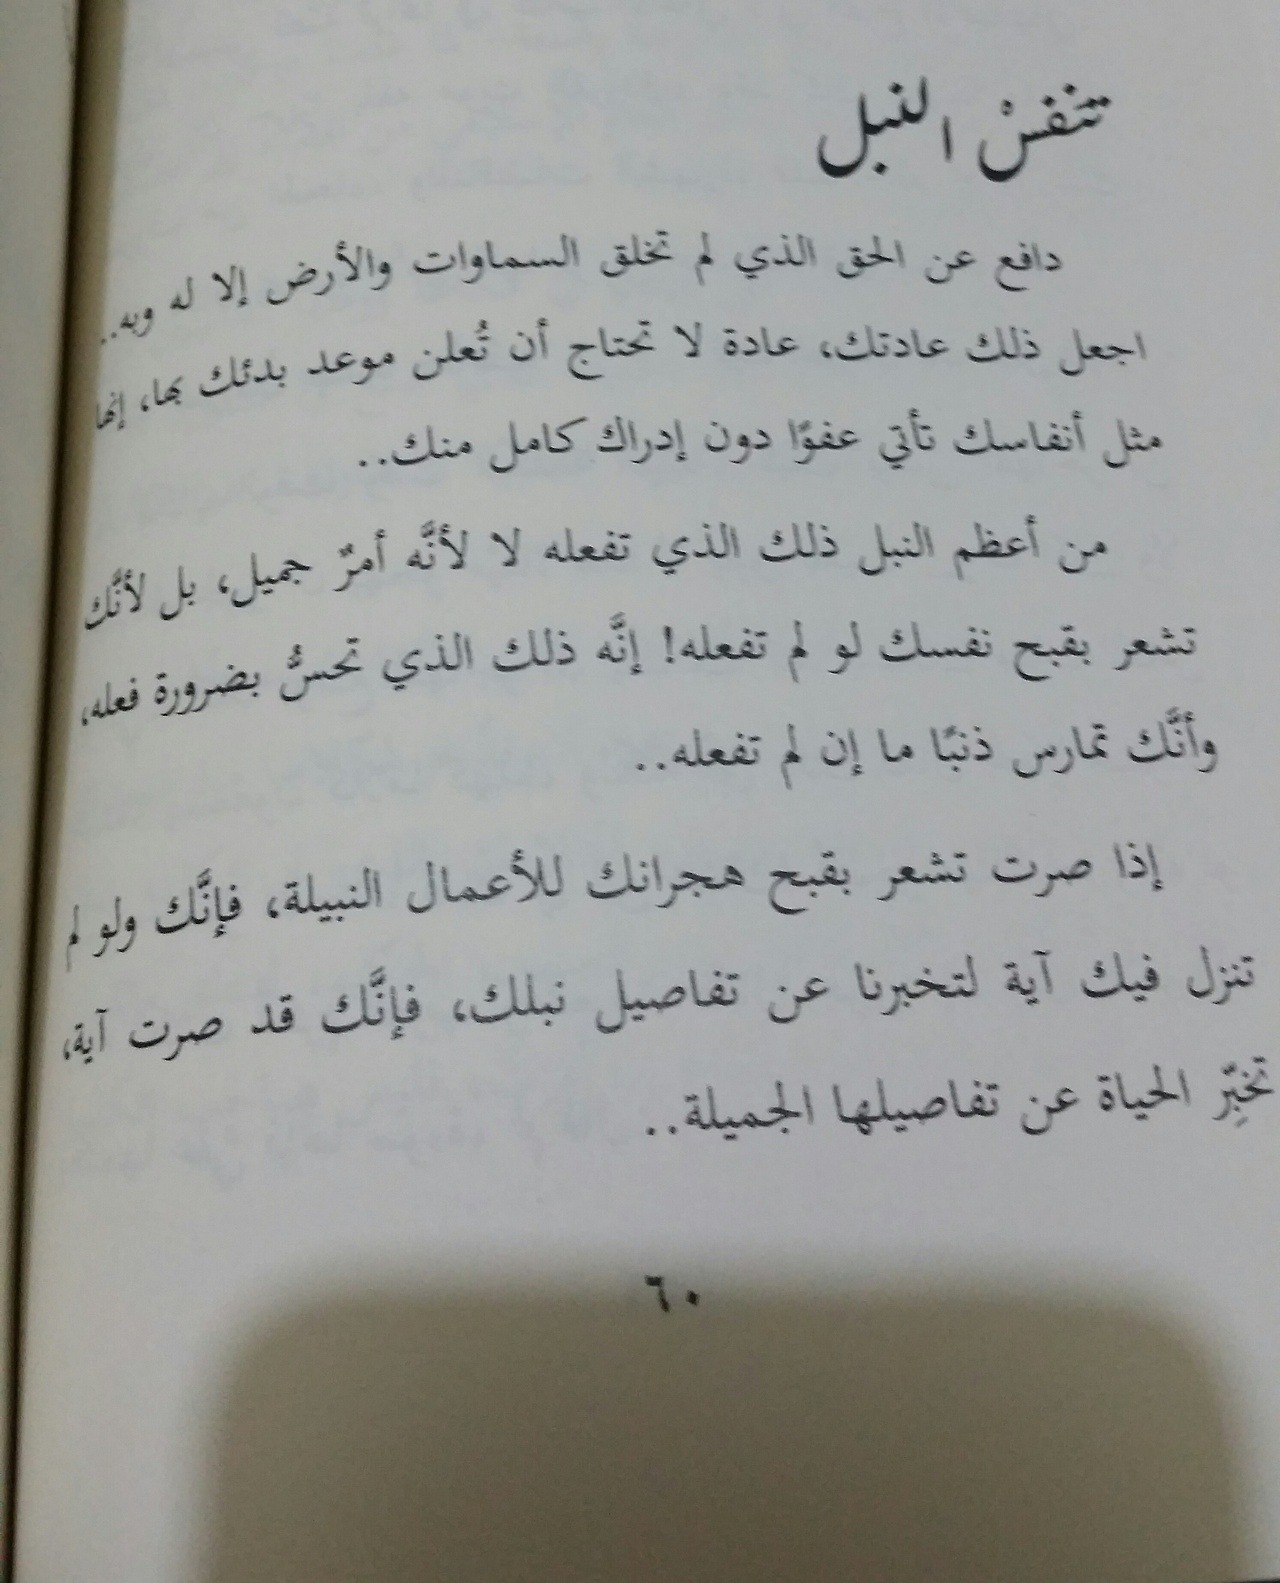 تنفسْ النبل
دافع عن الحق الذي لم تخلق السماوات والأرض إلا له وبه..
اجعل ذلك عادتك، عادة لا تحتاج أن تُعلن موعد بدئك بها، إنها
مثل أنفاسك تأتي عفوًا دون إدراك كامل منك..
من أعظم النبل ذلك الذي تفعله لا لأنَّه أمرٌ جميل، بل لأنَّك
تشعر بقبح نفسك لو لم تفعله! إنَّه ذلك الذي تحسُّ بضرورة فعله،
وأنَّك تمارس ذنبًا ما إن لم تفعله..
إذا صرت تشعر بقبح هجرانك للأعمال النبيلة، فإنَّك ولو لم
تنزل فيك آية لتخبرنا عن تفاصيل نبلك، فإنَّك قد صرت آية،
تخبِّر الحياة عن تفاصيلها الجميلة..
٦٠